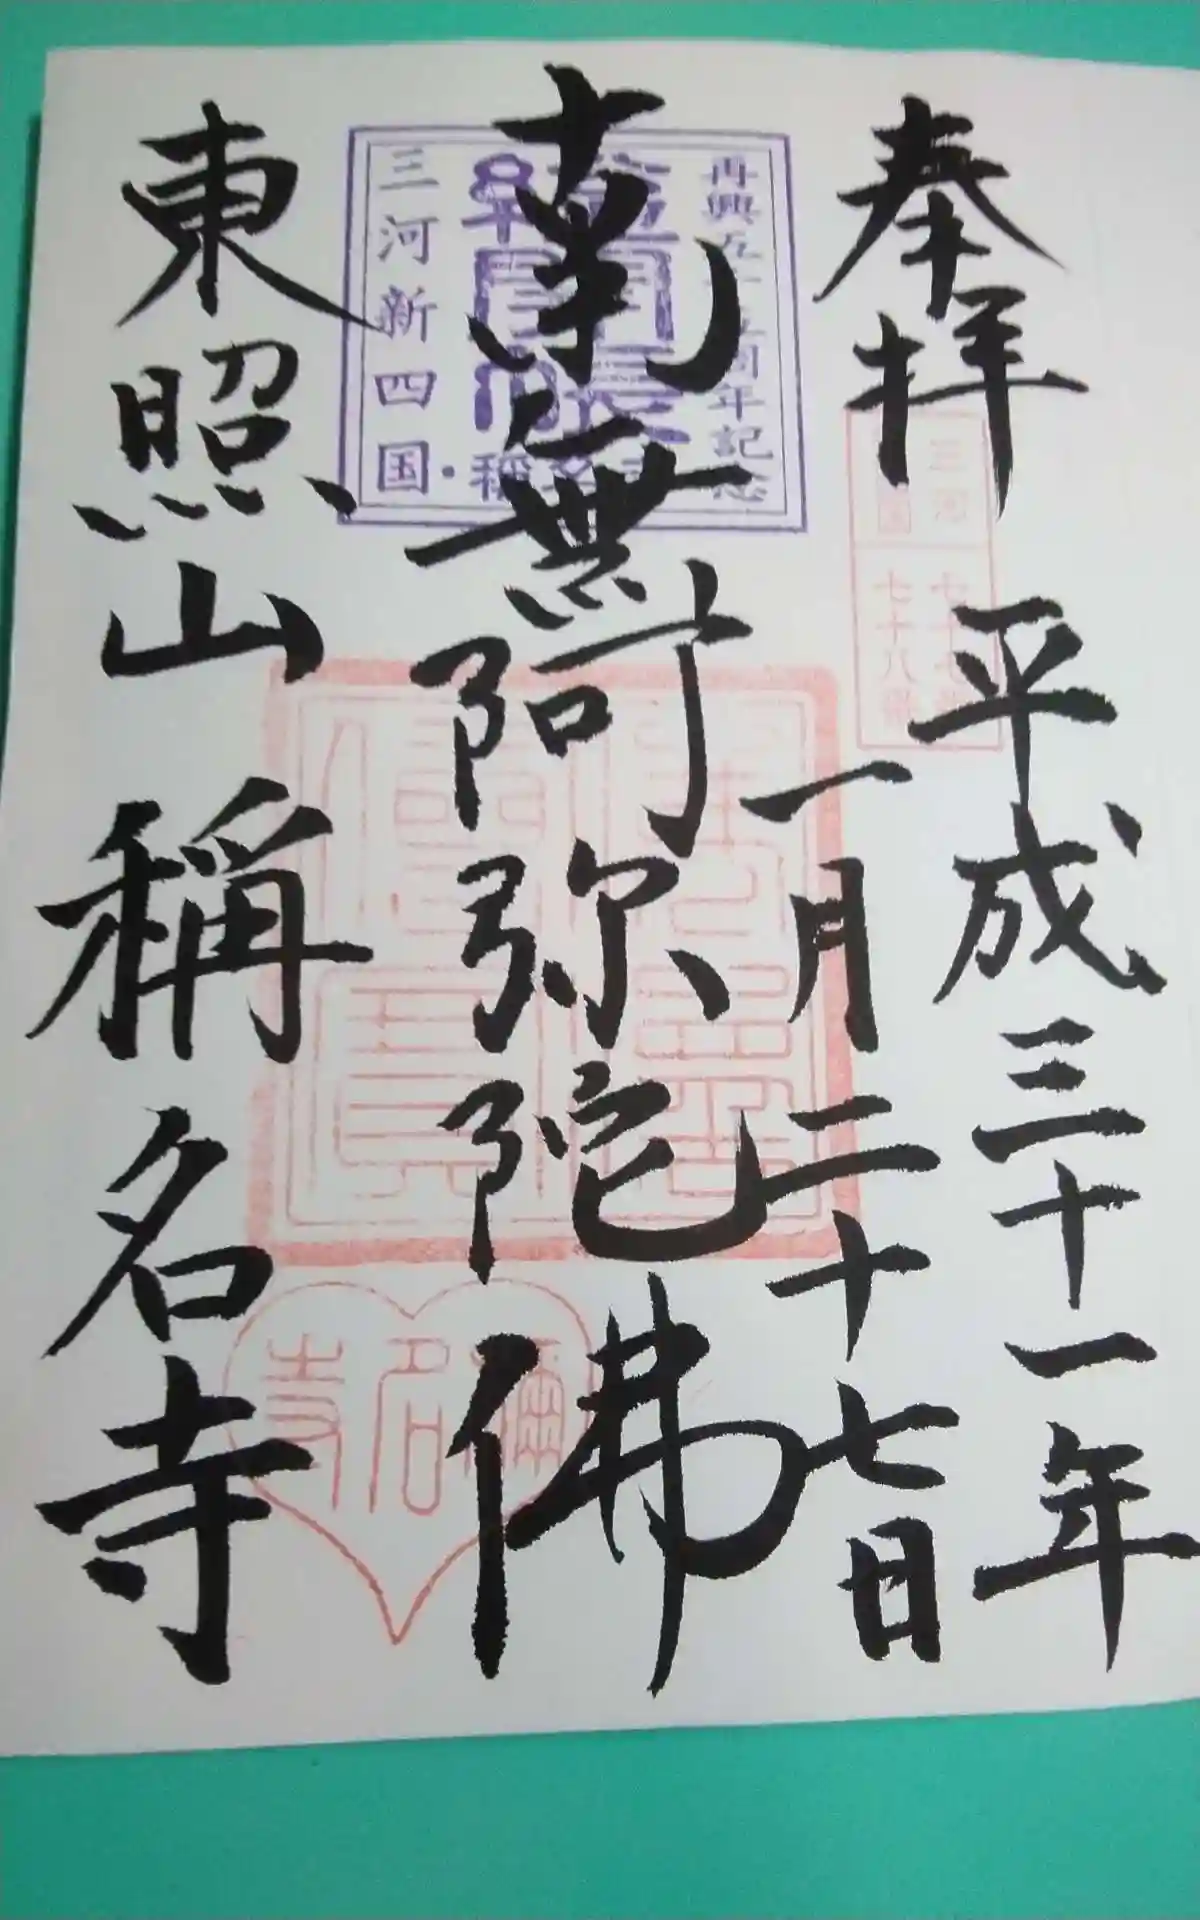 奉拝
平成三十一年
一月二十七日
南無阿弥陀佛
東照山稱名寺
再興五十五周年記念
三河新四国
三河
七十七番
七十八番
稱名寺